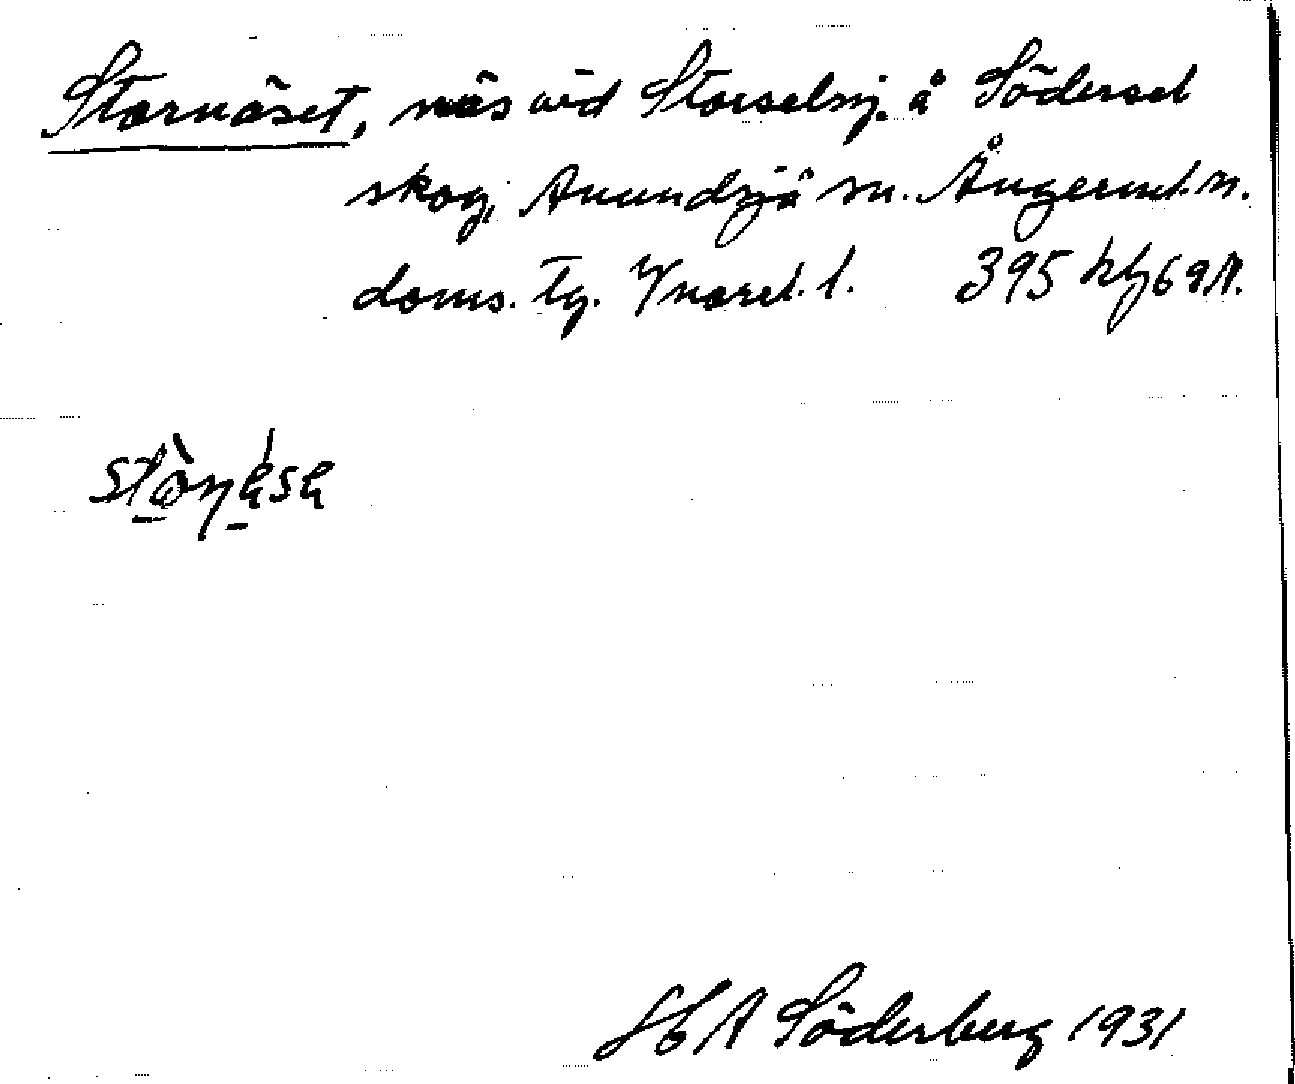 Stornäset, näs vid Storselsj. å Södersel
skog, Anundsjö sn. Ångerml. n.
doms. tg. Ynorel. l. 395 hg69A.
H A Söderberg 1931